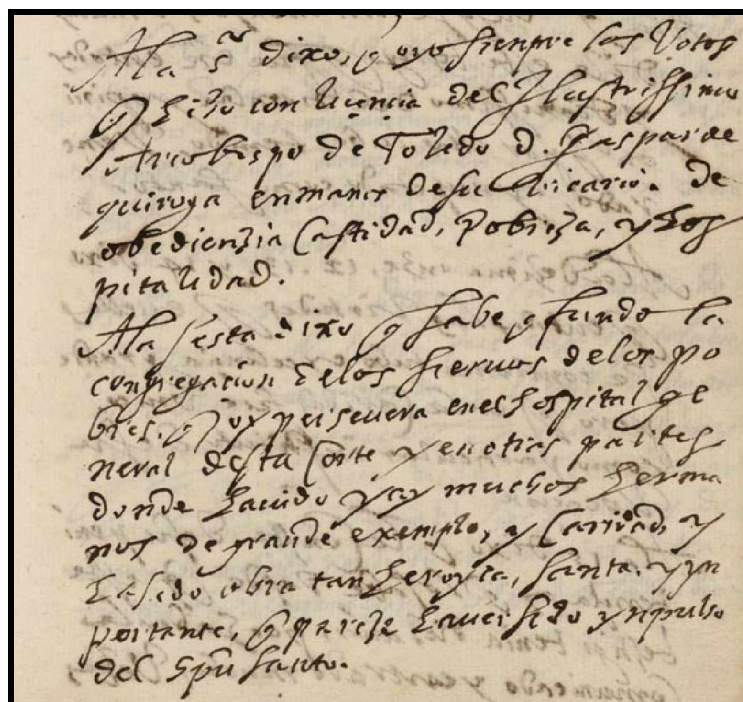 A la 5ª dixo, q oyo sienpre los Votos
q hiço con licencia del Illustrissimo
Arçobispo de Toledo d. Gaspar de
quiroga en manos de su bicario. de
obedienzia Castidad, Pobreza, y hos
pitalidad.
A la sesta dixo q sabe, q fundo la
congregacion de los sieruos de los po
bres. q oy perseuera en el hospital ge
neral desta Corte y en otras partes
donde hauido y ay muchos herma
nos de grande exemplo, y Caridad, y
ha sido obra tan heroyca, santa, y yn
portante, q pareze hauer sido ynpulso
del Spũ santo.